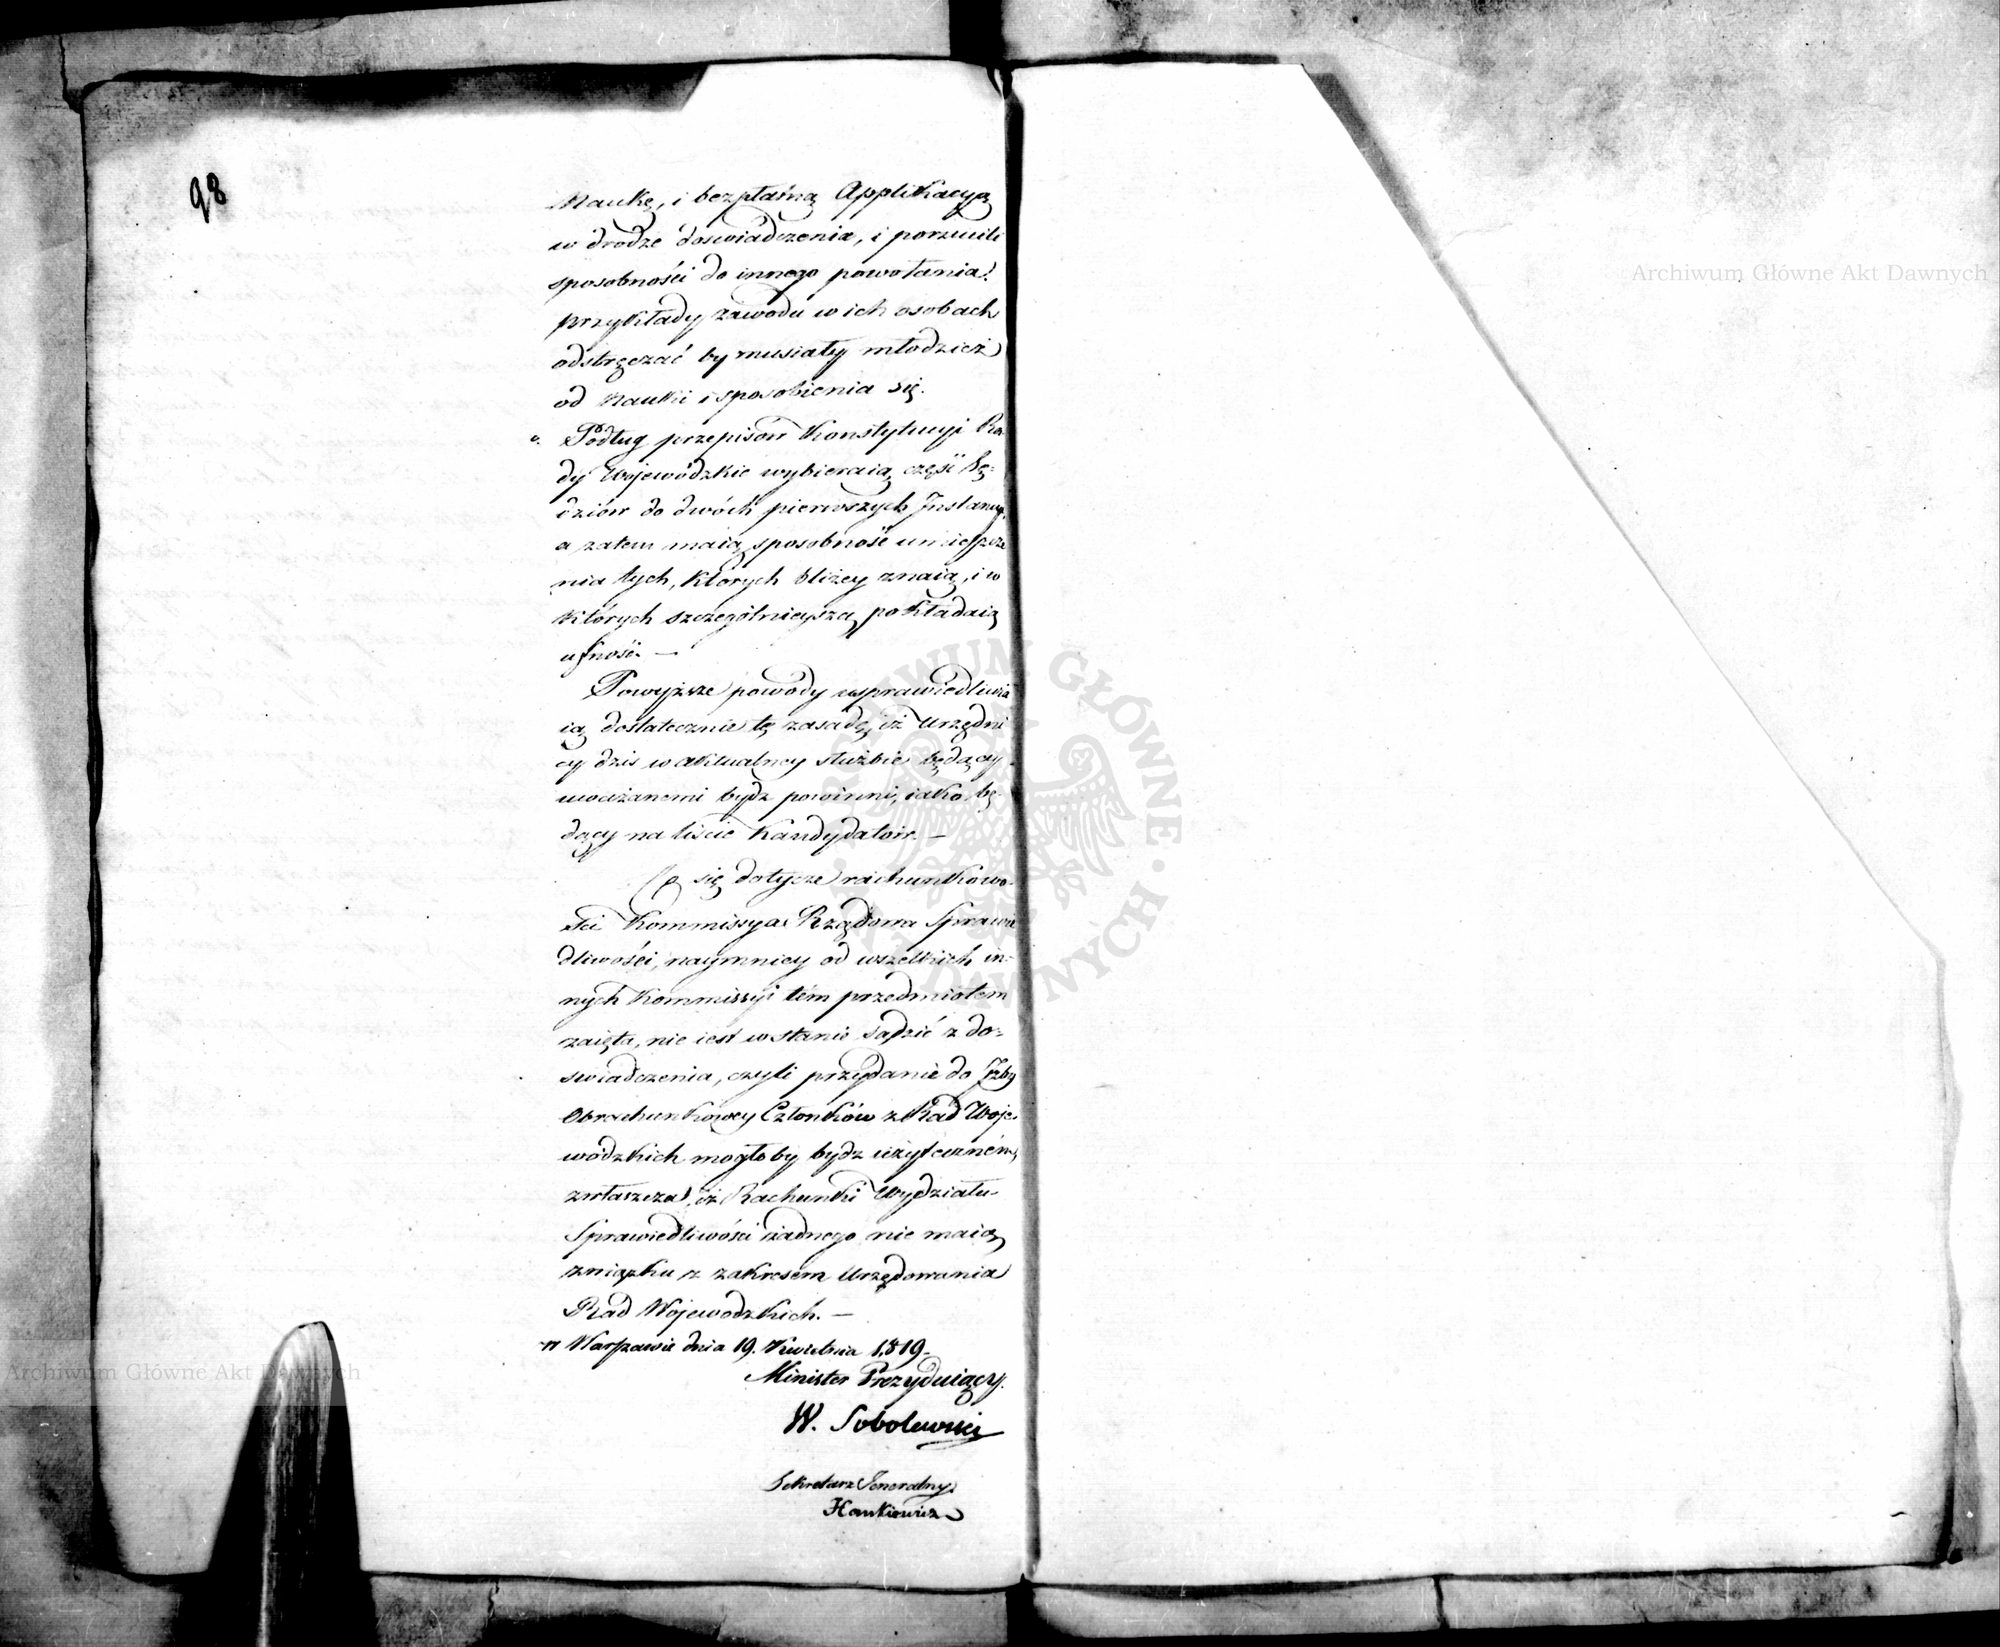 98
Naukę, i bezpłatną Applikacyą
w drodze doswiadczenia, i porzucili
sposobności do innego powołania!
przykłady zawodu w ich osobach
odstręczać by musiały młodzież
od Nauki i sposobienia się.
Podług przepisów Konstytucyi Ra-
dy Wojewódzkie wybieraią część Sę-
dziów do dwóch pierwszych Instancyi,
a zatem maią sposobność umieszcze
nia tych, których bliżey znaią, i w
których szczególnieyszą pokładaią
ufność. —
Powyższe powody usprawiedliwia
ią dostatecznie tę zasadę, iż Urzędni
cy dzis w aktualney służbie będący
uważanemi bydz powinni, iako bę-
dący na liście Kandydatów. —
Co się dotycze rachunkowo-
ści Kommissya Rządowa Sprawie
dliwości, naymniey od wszelkich in-
nych Kommissyi tém przedmiotem
zaięta, nie iest w stanie sądzić z do-
swiadczenia, czyli przydanie do Izby
Obrachunkowey Członków z Rad Woje-
wódzkich mogłoby bydz użyteczném,
zwłaszcza, iż Rachunki Wydziału
Sprawiedliwości żadnego nie maią
związku z zakresem Urzędowania
Rad Wojewodzkich. —
w Warszawie dnia 19. Kwietnia 1819.
Minister Prezyduiący.
W. Sobolewski
Sekretarz Jeneralny
Hankiewicz
Archiwum Główne Akt Dawnych
Archiwum Główne Akt Dawnych
ARCHIWUM GŁÓWNE AKT DAWNYCH